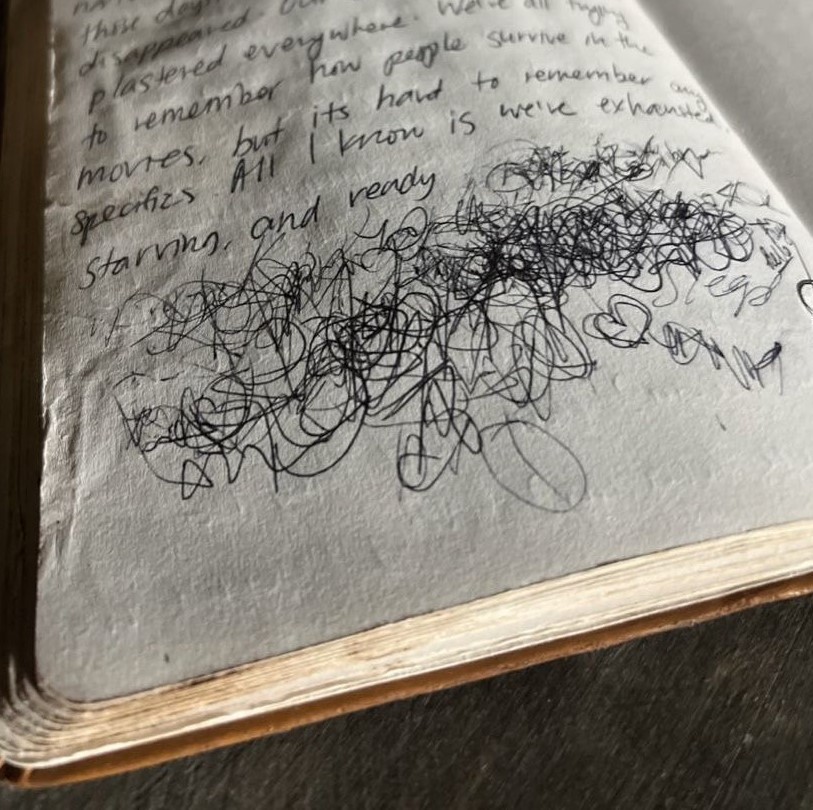 those days
disappeared.
plastered everywhere. We're all trying
to remember how people survive in the
movies, but its hard to remember any
specifics. All I know is we've exhausted,
starving, and ready